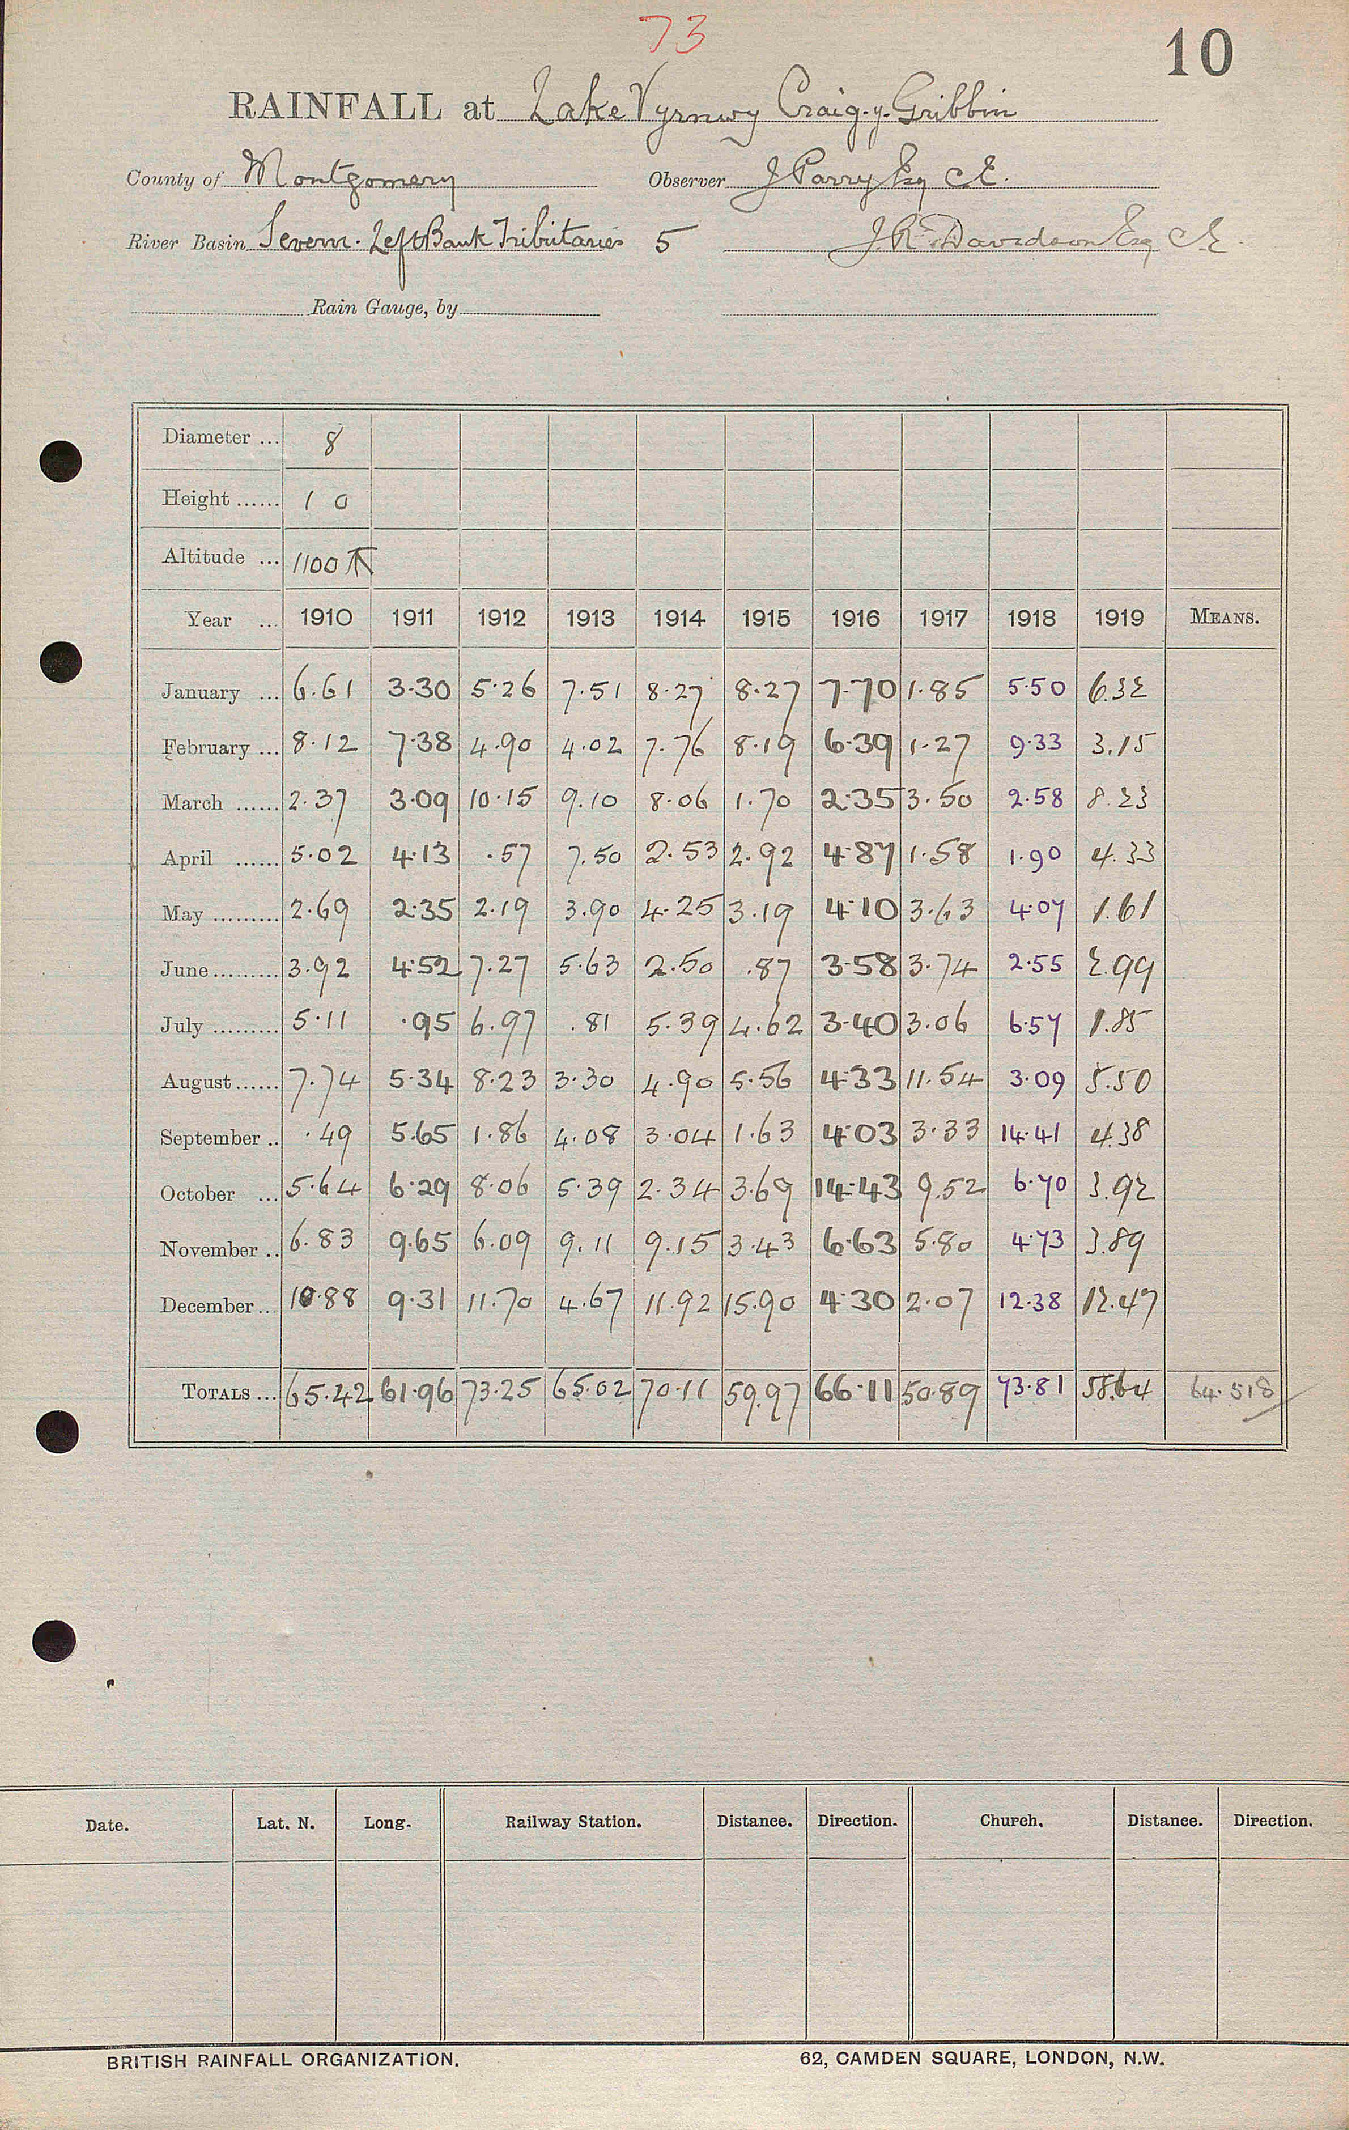 73
10
RAINFALL at Lake Vyrnwy Craig-y-Gribbin
County of Montgomery Observer J Parry Esq CE.
River Basin Severn. Left Bank Tributaries 5 J.R. Davidson Esq CE.
Rain Gauge, by
Diameter ... 8
Height ...... 1 0
Altitude ... 1100
Year ... 1910 1911 1912 1913 1914 1915 1916 1917 1918 1919 MEANS.
January ... 6.61 3.30 5.26 7.51 8.27 8.27 7.70 1.85 5.50 6.32
February ... 8.12 7.38 4.90 4.02 7.76 8.19 6.39 1.27 9.33 3.15
March ...... 2.37 3.09 10.15 9.10 8.06 1.70 2.35 3.50 2.58 8.23
April ...... 5.02 4.13 .57 7.50 2.53 2.92 4.87 1.58 1.90 4.33
May ......... 2.69 2.35 2.19 3.90 4.25 3.19 4.10 3.63 4.07 1.61
June ......... 3.92 4.52 7.27 5.63 2.50 .87 3.58 3.74 2.55 2.99
July ......... 5.11 .95 6.97 .81 5.39 4.62 3.40 3.06 6.57 1.85
August ...... 7.74 5.34 8.23 3.30 4.90 5.56 4.33 11.54 3.09 5.50
September .. .49 5.65 1.86 4.08 3.04 1.63 4.03 3.33 14.41 4.38
October ... 5.64 6.29 8.06 5.39 2.34 3.69 14.43 9.52 6.70 3.92
November .. 6.83 9.65 6.09 9.11 9.15 3.43 6.63 5.80 4.73 3.89
December ... 10.88 9.31 11.70 4.67 11.92 15.90 4.30 2.07 12.38 12.47
TOTALS ... 65.42 61.96 73.25 65.02 70.11 59.97 66.11 50.89 73.81 58.64 64.518
Date. Lat. N. Long. Railway Station. Distance. Direction. Church. Distance. Direction.
BRITISH RAINFALL ORGANIZATION. 62, CAMDEN SQUARE, LONDON, N.W.